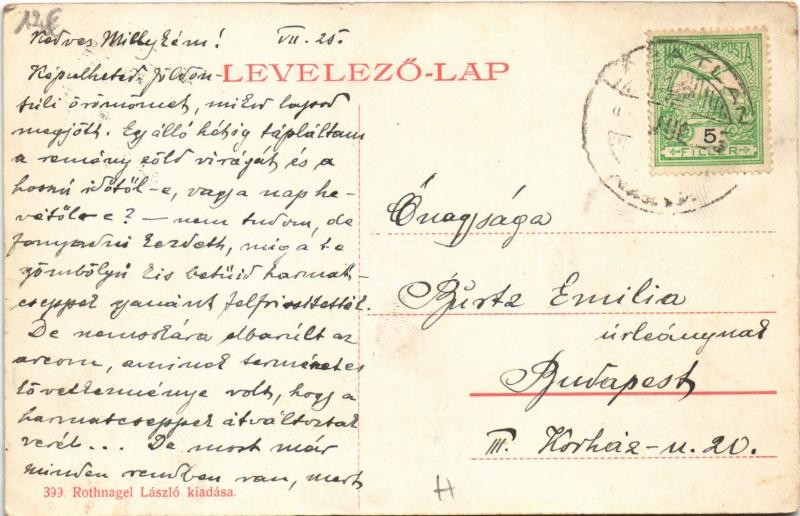 128
Kedves Millykém! VII. 25.
LEVELEZŐ-LAP
Képzelheted földön-
túli örömömet, mikor lapod
megjött. Egy álló hétig tápláltam
a remény zöld virágát és a
hosszú időtől-e, vagy a nap he-
vétől-e? — nem tudom, de
fonnyadni kezdett, míg a te
gömbölyű kis betűid harmat-
cseppek gyanánt felfrissítették.
De nemsokára elborult az
arcom, aminek természetes
következménye volt, hogy a
harmatcseppek átváltoztak
verít... De most már
minden rendben van, mert
399. Rothnagel László kiadása.
MAGY. KIR. POSTA
5
FILLÉR
Őnagysága
Burtz Emilia
úrleánynak
Budapest
III. Kórház-u. 20.
H